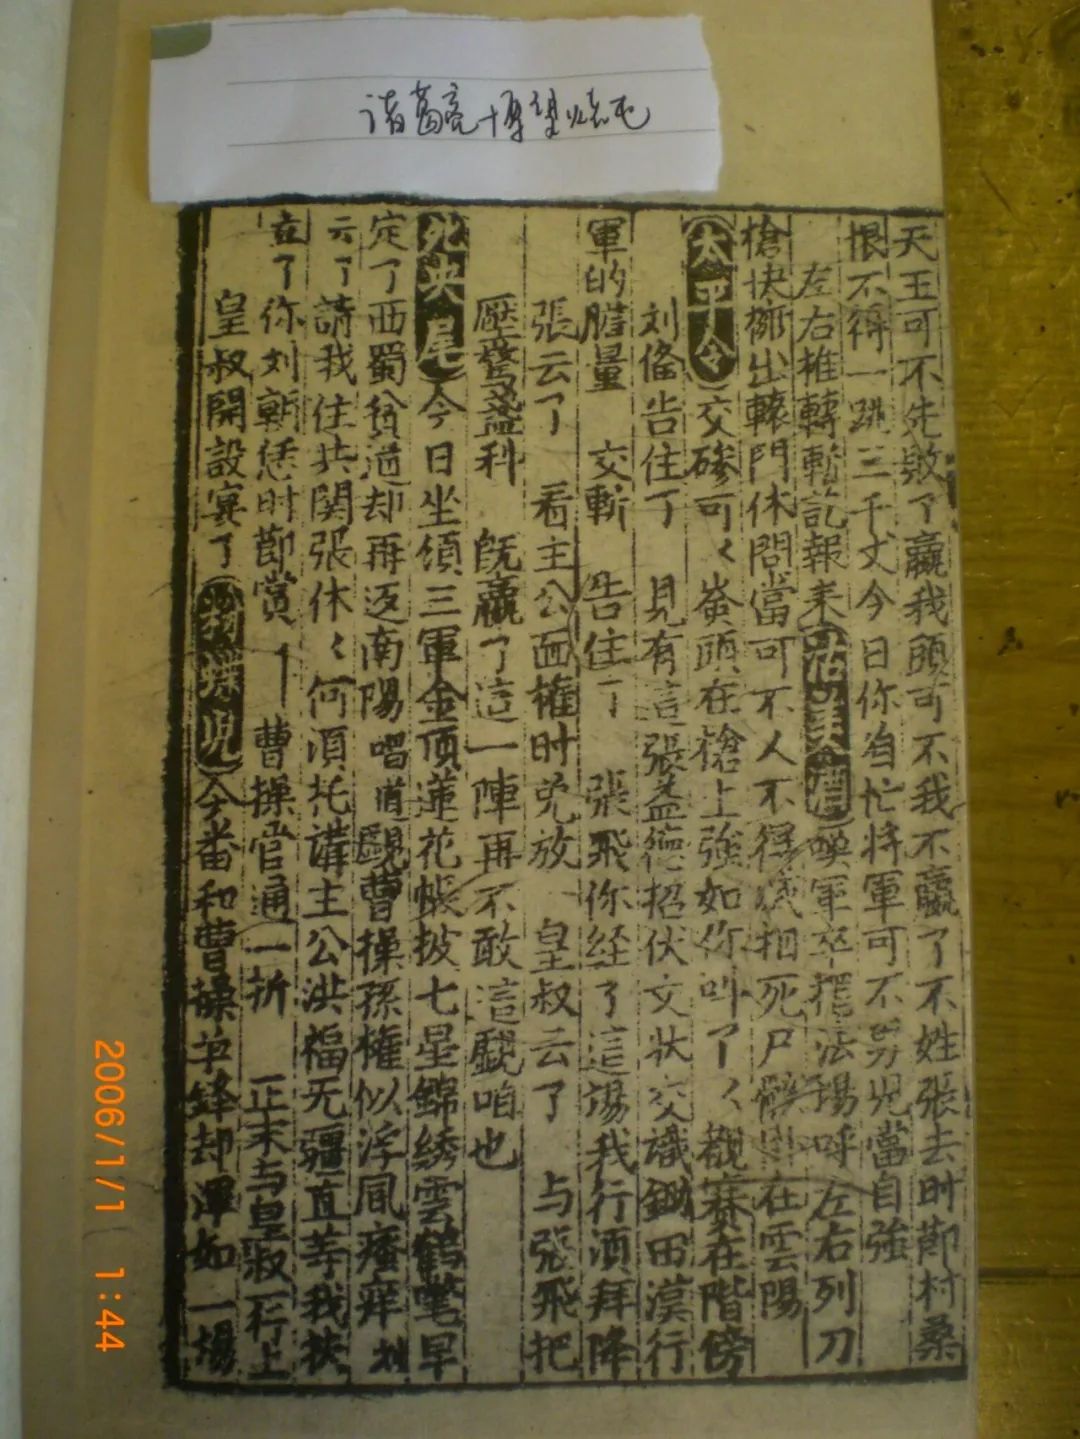 诸葛亮博望烧屯
天王可不先败了羸我頭可不我不羸了不姓張去时節村桑
恨不得一跳三千丈今日你自忙将軍可不男児當自強
左右推轉斬訖報来
喚軍卒擺法場呼左右列刀
槍快挷出轅門休問當可不人不得
相死尸
在雲陽
太平令
交磣可く
頭在槍上強如你叫了く覷賽在階傍
刘俻告住了 見有這張益德招伏文状交識鋤田漢行
軍的膽量 交斬 告住了 張飛你経了這場我行湏拜降
張云了 看主公面權时免放 皇叔云了 与張飛把
盞科 既羸了這一陣再不敢這觑咱也
尾
今日坐領三軍金頂蓮花帳披七星錦綉雲鶴氅早
定了西蜀貧道却再返南陽 唱道觑曹操孫權似浮風瘙痒
云了請我住共関張休く何湏托講主公洪福无疆直等我扶
立了你刘朝恁时節賞 曹操官通一折 正末与皇叔一行上
皇叔開設宴了
今番和曹操争鋒却渾如一場
2006/1/1 1:44